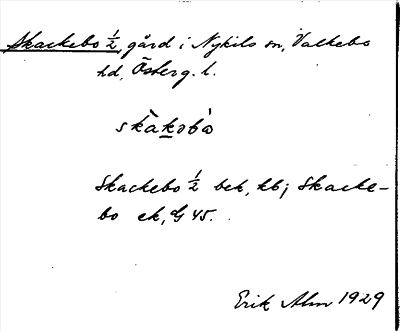 Skackebo ½, gård i Nykils sn, Valkebo
hd, Österg. l.
skàkobó
Skackebo ½ bek, kb; Skacke-
bo ek, G 45.
Erik Alm 1929